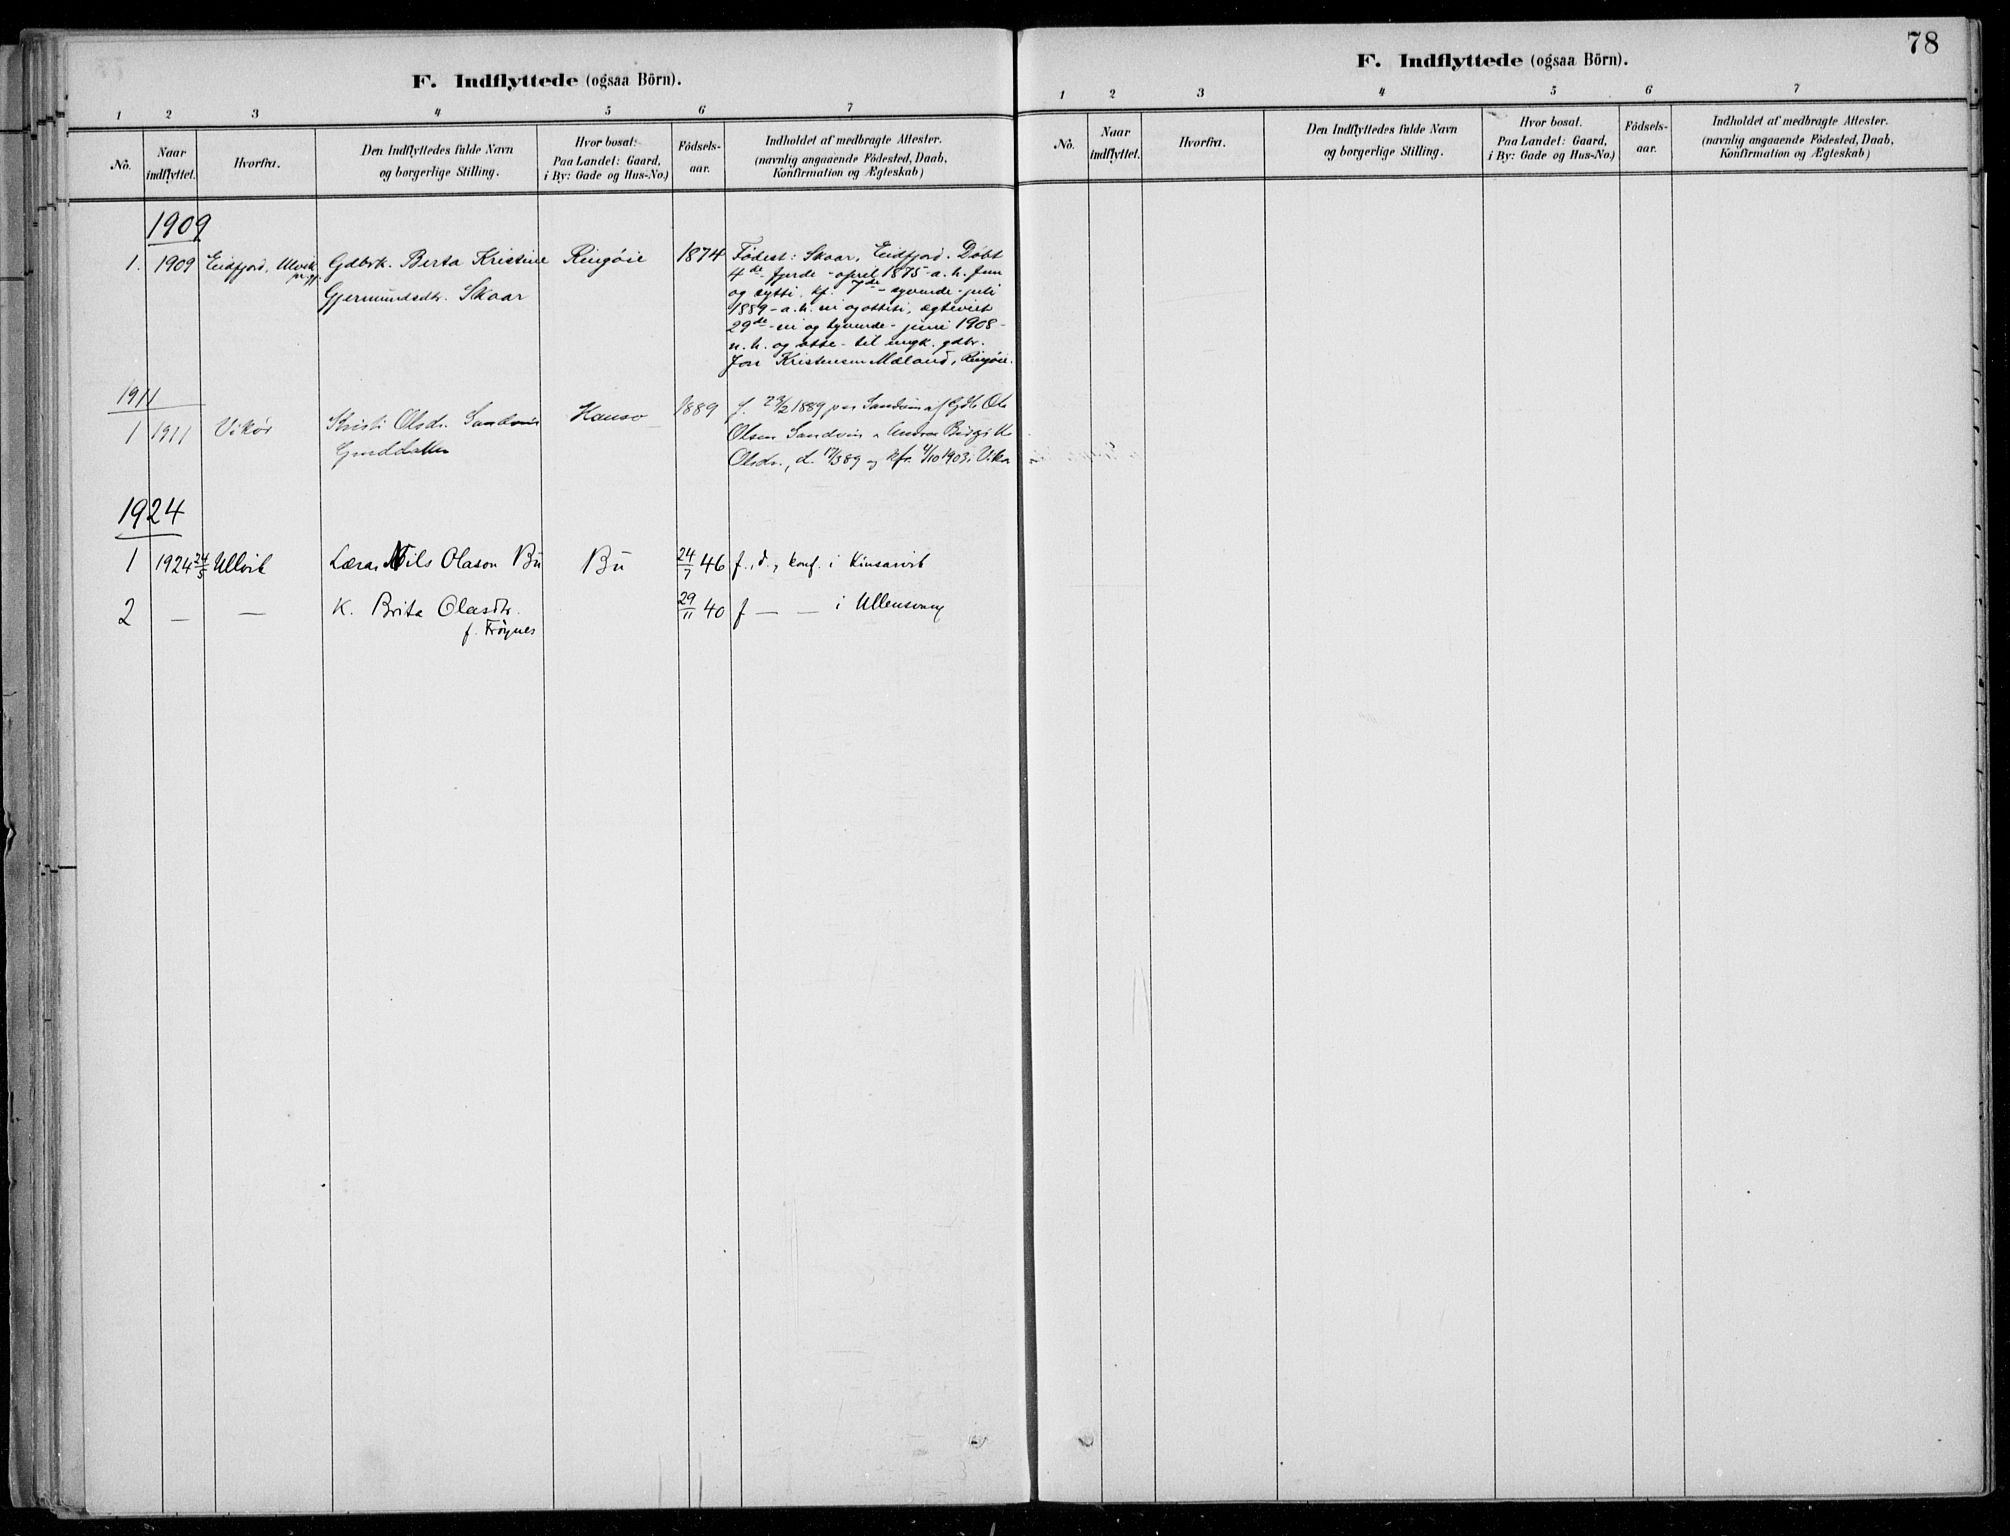 F. Indflyttede (ogsaa Börn).
1 2 3 4 5 6 7
No. Naar indflyttet. Hvorfra. Den Indflyttedes fulde Navn og borgerlige Stilling. Hvor bosat: Paa Landet: Gaard, i By: Gade og Hus-No.) Fødsels-aar. Indholdet af medbragte Attester. (navnlig angaaende Fødested, Daab, Konfirmation og Ægteskab)
1909
1. 1909 Eidfjord, Ulvik Gdbrk. Berta Kristine Ringøie 1874 Fødest: Skaar, Eidfjord. Døbt
prgj. Gjermundsdtr. Skaar 4de - fjerde - april 1875 - a. h. fem
og sytti, kf. 7de - syvende - juli
1889 - a. h. ni og otteti, ægteviet
29de - ni og tyvende - juni 1908 -
n. h. og otte - til ungk. gdbr.
Jon Kristensen Mæland, Ringøie.
1911
1 1911 Vikør Kristi Olsdr. Sandvin Hauso 1889 f. 23/2 1889 paa Sandvin af Gdbr Ola
Olsen Sandvin
Olsdr., d. 17/3 89 og kfr. 4/10 1903 i Vikør
1924
1 1924 24/5 Ullvik Lærar Nils Olason Bu Bu 24/7 46 f., d., konf. i Kinsarvik
2 — — K. Brita Olasdtr. 29/11 40 f — — i Ullensvang
f. Frøynes
78
F. Indflyttede (ogsaa Börn).
1 2 3 4 5 6 7
No. Naar indflyttet. Hvorfra. Den Indflyttedes fulde Navn og borgerlige Stilling. Hvor bosat. Paa Landet: Gaard, i By: Gade og Hus-No.) Fødsels-aar. Indholdet af medbragte Attester. (navnlig angaaende Fødested, Daab, Konfirmation og Ægteskab)